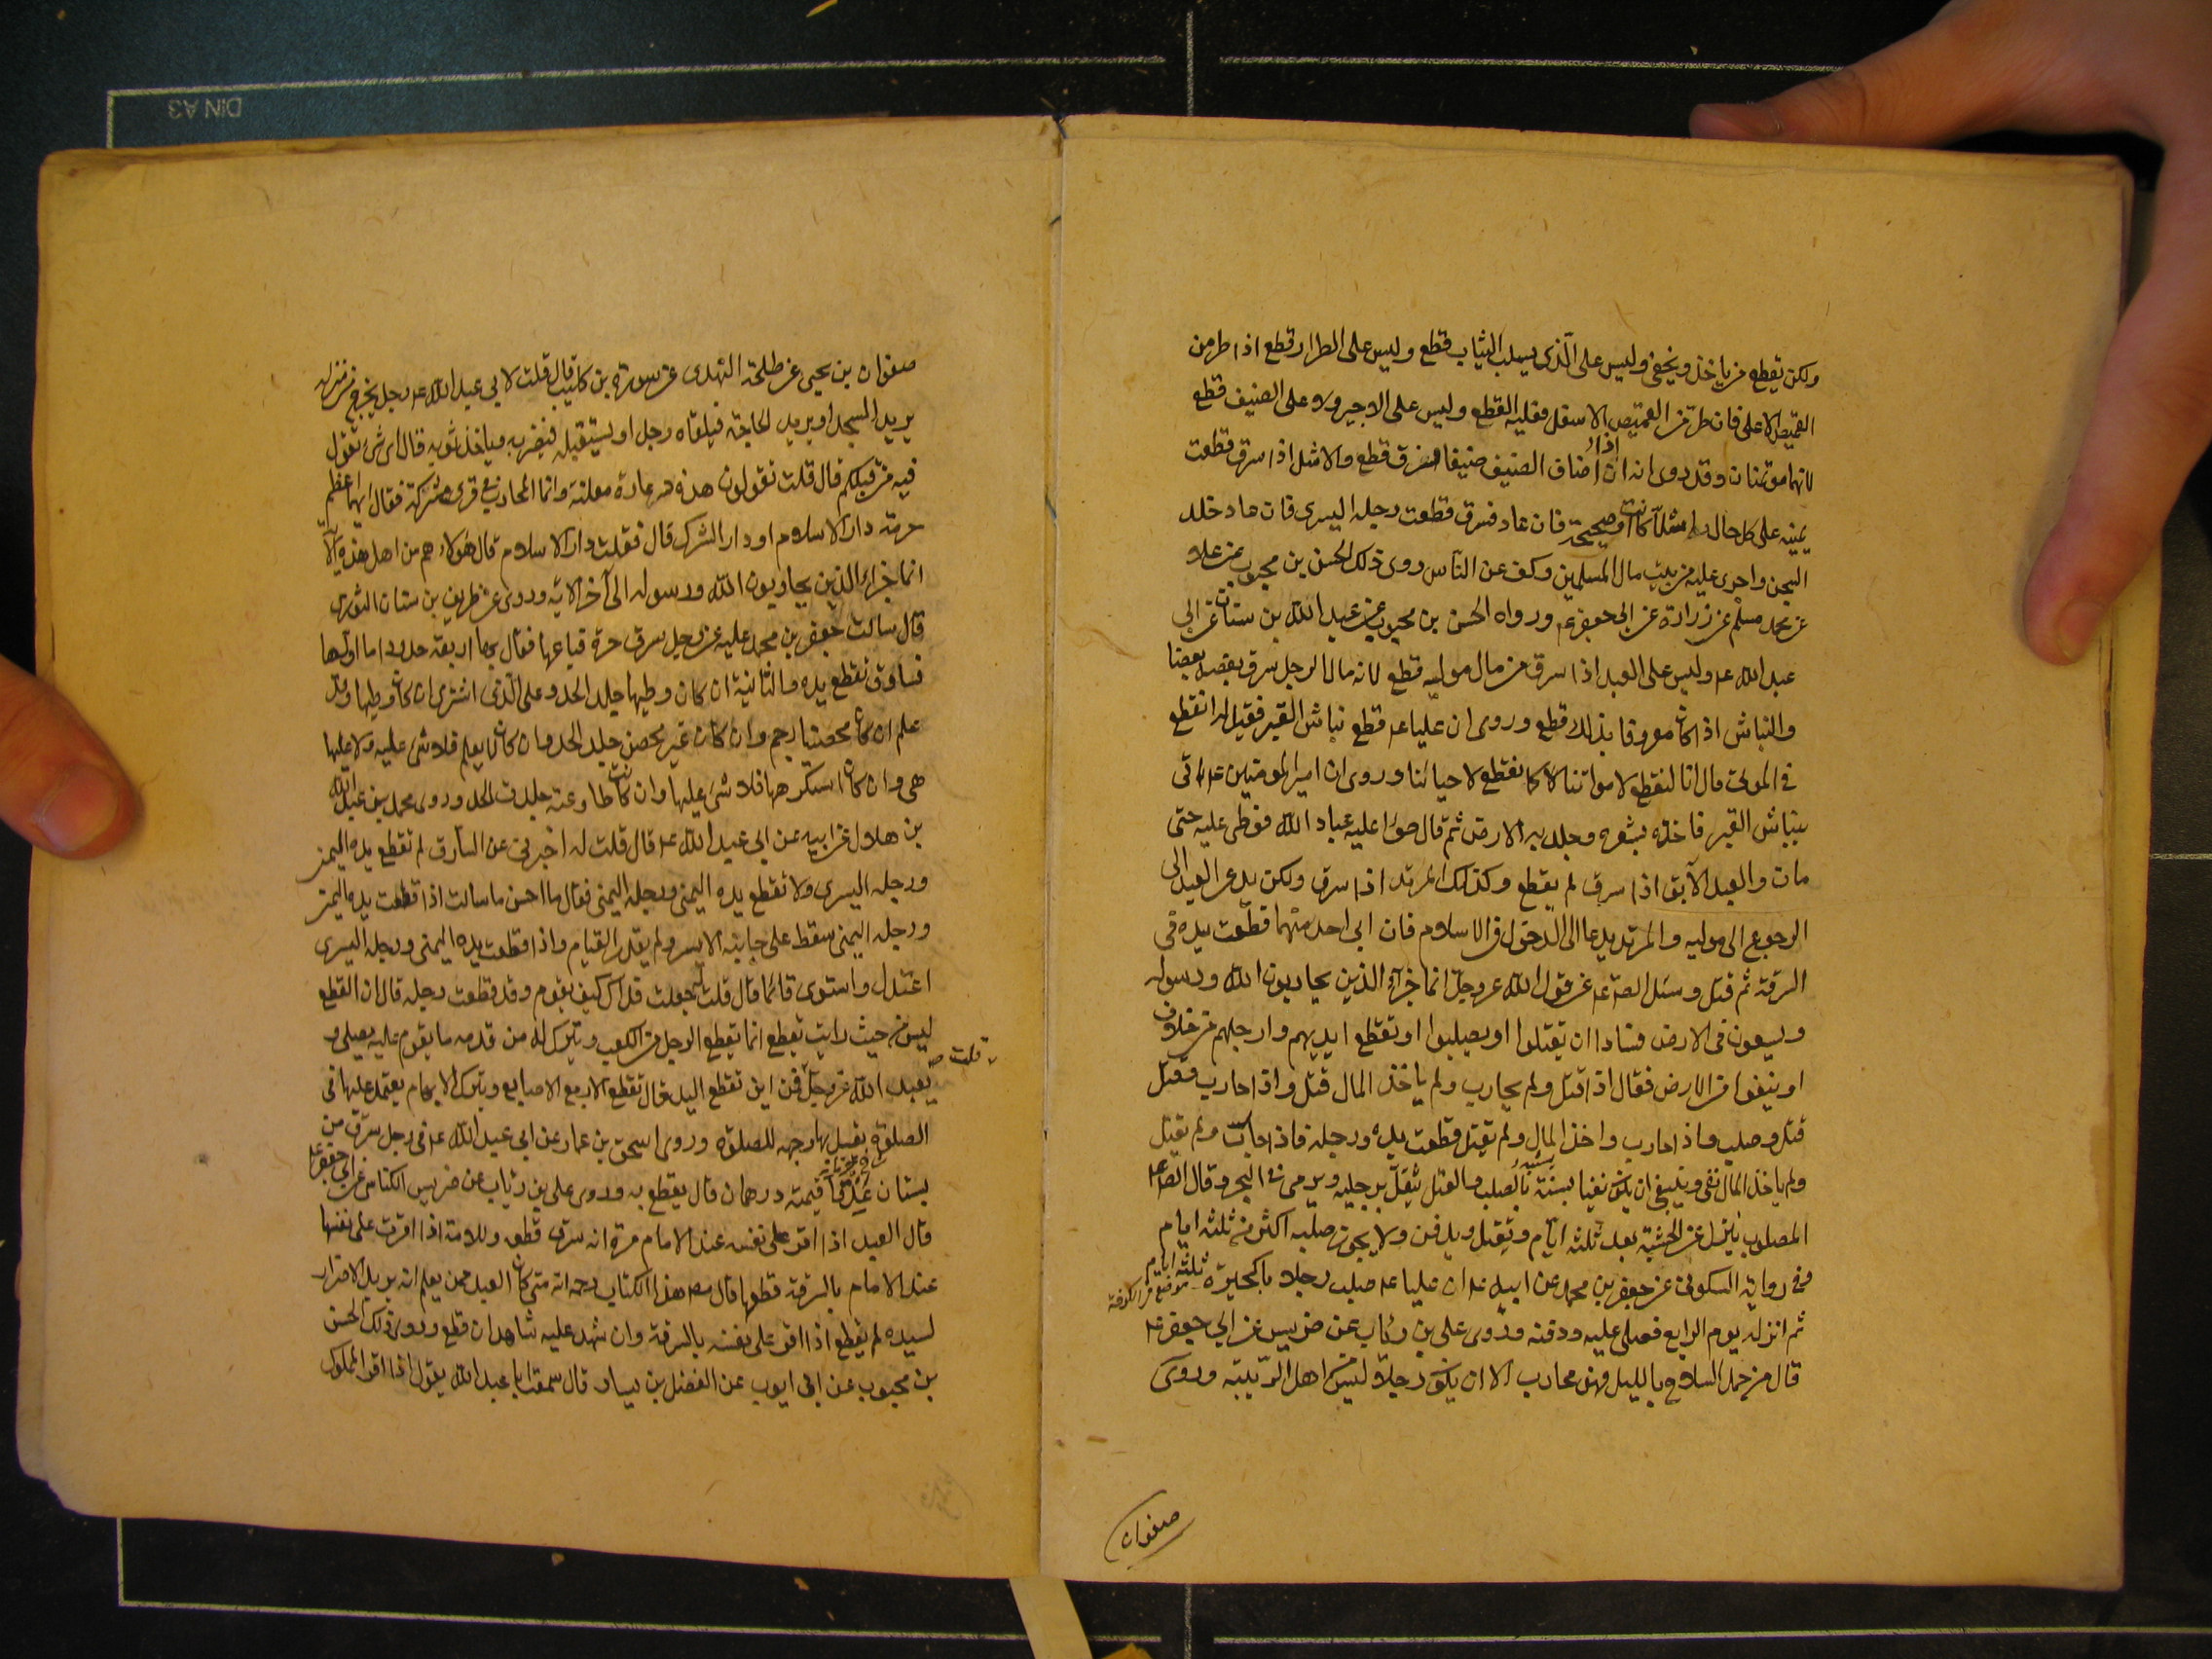 ولكن يقطع من ياخذ ويخفى وليس على الذى يسلب الثياب قطع وليس على الطرار قطع اذا طر من
القميص الاعلى فان طر من القميص الاسفل فعليه القطع وليس على الاجير ولا على الضيف قطع
لانهما موتمنان وقد روى انه ان اضاف الضيف ضيفا فسرق قطع والاشل اذا سرق قطعت
اذا
يمينه على كل حال شلاء كانت او صحيحة فان عاد فسرق قطعت رجله اليسرى فان عاد خلد
السجن واجرى عليه من بيت مال المسلمين وكف عن الناس روى ذلك الحسن بن محبوب عن علا
عن محمد مسلم عن زرارة عن ابى جعفر عم ورواه الحسن بن محبوب عن عبد الله بن سنان عن ابى
عبد الله عم وليس على العبد اذا سرق من مال موليه قطع لانه مال الرجل سرق بعضه بعضا
والنباش اذا كان معروفا بذلك قطع وروى ان عليا عم قطع نباش القبر فقيل له اتقطع
فى الموتى قال انا لنقطع لامواتنا كما نقطع لاحيائنا وروى ان امير المومنين عم اتى
بنباش القبر فاخذه بشعره وجلد به الارض ثم قال طؤا عليه عباد الله فوطى عليه حتى
مات والعبد الآبق اذا سرق لم يقطع وكذلك المرتد اذا سرق ولكن يدعى العبد الى
الرجوع الى موليه والمرتد يدعا الى الدخول فى الاسلام فان ابى احد منهما قطعت يده فى
السرقة ثم قتل وسئل الصم عم عن قول الله عز وجل انما جزاء الذين يحاربون الله ورسوله
ويسعون فى الارض فسادا ان يقتلوا او يصلبوا او تقطع ايديهم وارجلهم من خلاف
او ينفوا من الارض فقال اذا قتل ولم يحارب ولم ياخذ المال قتل واذا حارب وقتل
قتل وصلب واذا حارب واخذ المال ولم يقتل قطعت يده ورجله فاذا حارب ولم يقتل
ولم ياخذ المال نفى وينبغى ان يكون نفيا يشبه بالصلب والقتل يثقل برجليه ويرمى فى البحر وقال الصم عم
المصلوب ينزل عن الخشبة بعد ثلثة ايام ويغسل ويدفن ولا يجوز صلبه اكثر من ثلثة ايام
وفى رواية السكونى عن جعفر بن محمد عن ابيه عم ان عليا عم صلب رجلا بالحيرة ثلثة ايام
موضع من الكوفة
ثم انزله يوم الرابع فصلى عليه ودفنه وروى على بن رئاب عن ضريس عن ابى جعفر عم
قال من حمل السلاح بالليل فهو محارب الا ان يكون رجلا ليس من اهل الريبة وروى
صفوان
صفوان بن يحيى عن طلحة النهدى عن سورة بن كليب قال قلت لابى عبد الله عم رجل يخرج من منزله
يريد المسجد او يريد الحاجة فيلقاه رجل او يستقبله فيضربه وياخذ ثوبه قال اى شئ تقول
فيه من قبلكم قال قلت يقولون هذه دعارة معلنة وانما المحارب فى قرى مشركة فقال ايهما اعظم
حرمة دار الاسلام او دار الشرك قال فقلت دار الاسلام قال هؤلاء هم من اهل هذه الآية
انما جزاء الذين يحاربون الله ورسوله الى آخر الاية وروى عن طريف بن سنان الثورى
قال سالت جعفر بن محمد عليه عن رجل سرق حرة فباعها فقال فيها اربعة حدود اما اولها
فسارق تقطع يده والثانية ان كان وطيها جلد الحد وعلى الذى اشترى ان كان وطيها وقد
علم ان كان محصنا رجم وان كان غير محصن جلد الحد وان كان لا يعلم فلا شئ عليه ولا عليها
هى وان كان استكرهها فلا شئ عليها وان كانت طاوعته جلدت الحد وروى محمد بن عبد الله
بن هلال عن ابيه عن ابى عبد الله عم قال قلت له اخبرنى عن السارق لم تقطع يده اليمنى
ورجله اليسرى ولا تقطع يده اليمنى ورجله اليمنى فقال ما احسن ما سالت اذا قطعت يده اليمنى
ورجله اليمنى سقط على جانبه الايسر ولم يقدر القيام واذا قطعت يده اليمنى ورجله اليسرى
اعتدل واستوى قائما قال قلت جعلت فداك كيف يقوم وقد قطعت رجله قال ان القطع
ليس من حيث رايت يقطع انما يقطع الرجل من الكعب ويترك له من قدمه ما يقوم عليه يصلى و
قلت ص
يعبد الله عز وجل فمن اين تقطع اليد قال تقطع الاربع الاصابع ويترك الابهام يعتمد عليها فى
الصلوة يغسل بها وجهه للصلوة وروى اسحق بن عمار عن ابى عبد الله عم فى رجل سرق من
بستان عذقا قيمته درهمان قال يقطع به وروى على بن رئاب عن ضريس الكناسى عن ابى جعفر عم
قال العبد اذا اقر على نفسه عند الامام مرة انه سرق قطعه وللامة اذا اقرت على نفسها
عند الامام بالسرقة قطعها قال مص هذا الكتاب رحمه الله متى كان العبد ممن يعلم انه يريد الاضرار
لسيده لم يقطع اذا اقر على نفسه بالسرقة وان شهد عليه شاهدان قطع وروى ذلك الحسن
بن محبوب عن ابى ايوب عن الفضل بن يسار قال سمعت ابا عبد الله يقول اذا اقر المملوك
DIN A3